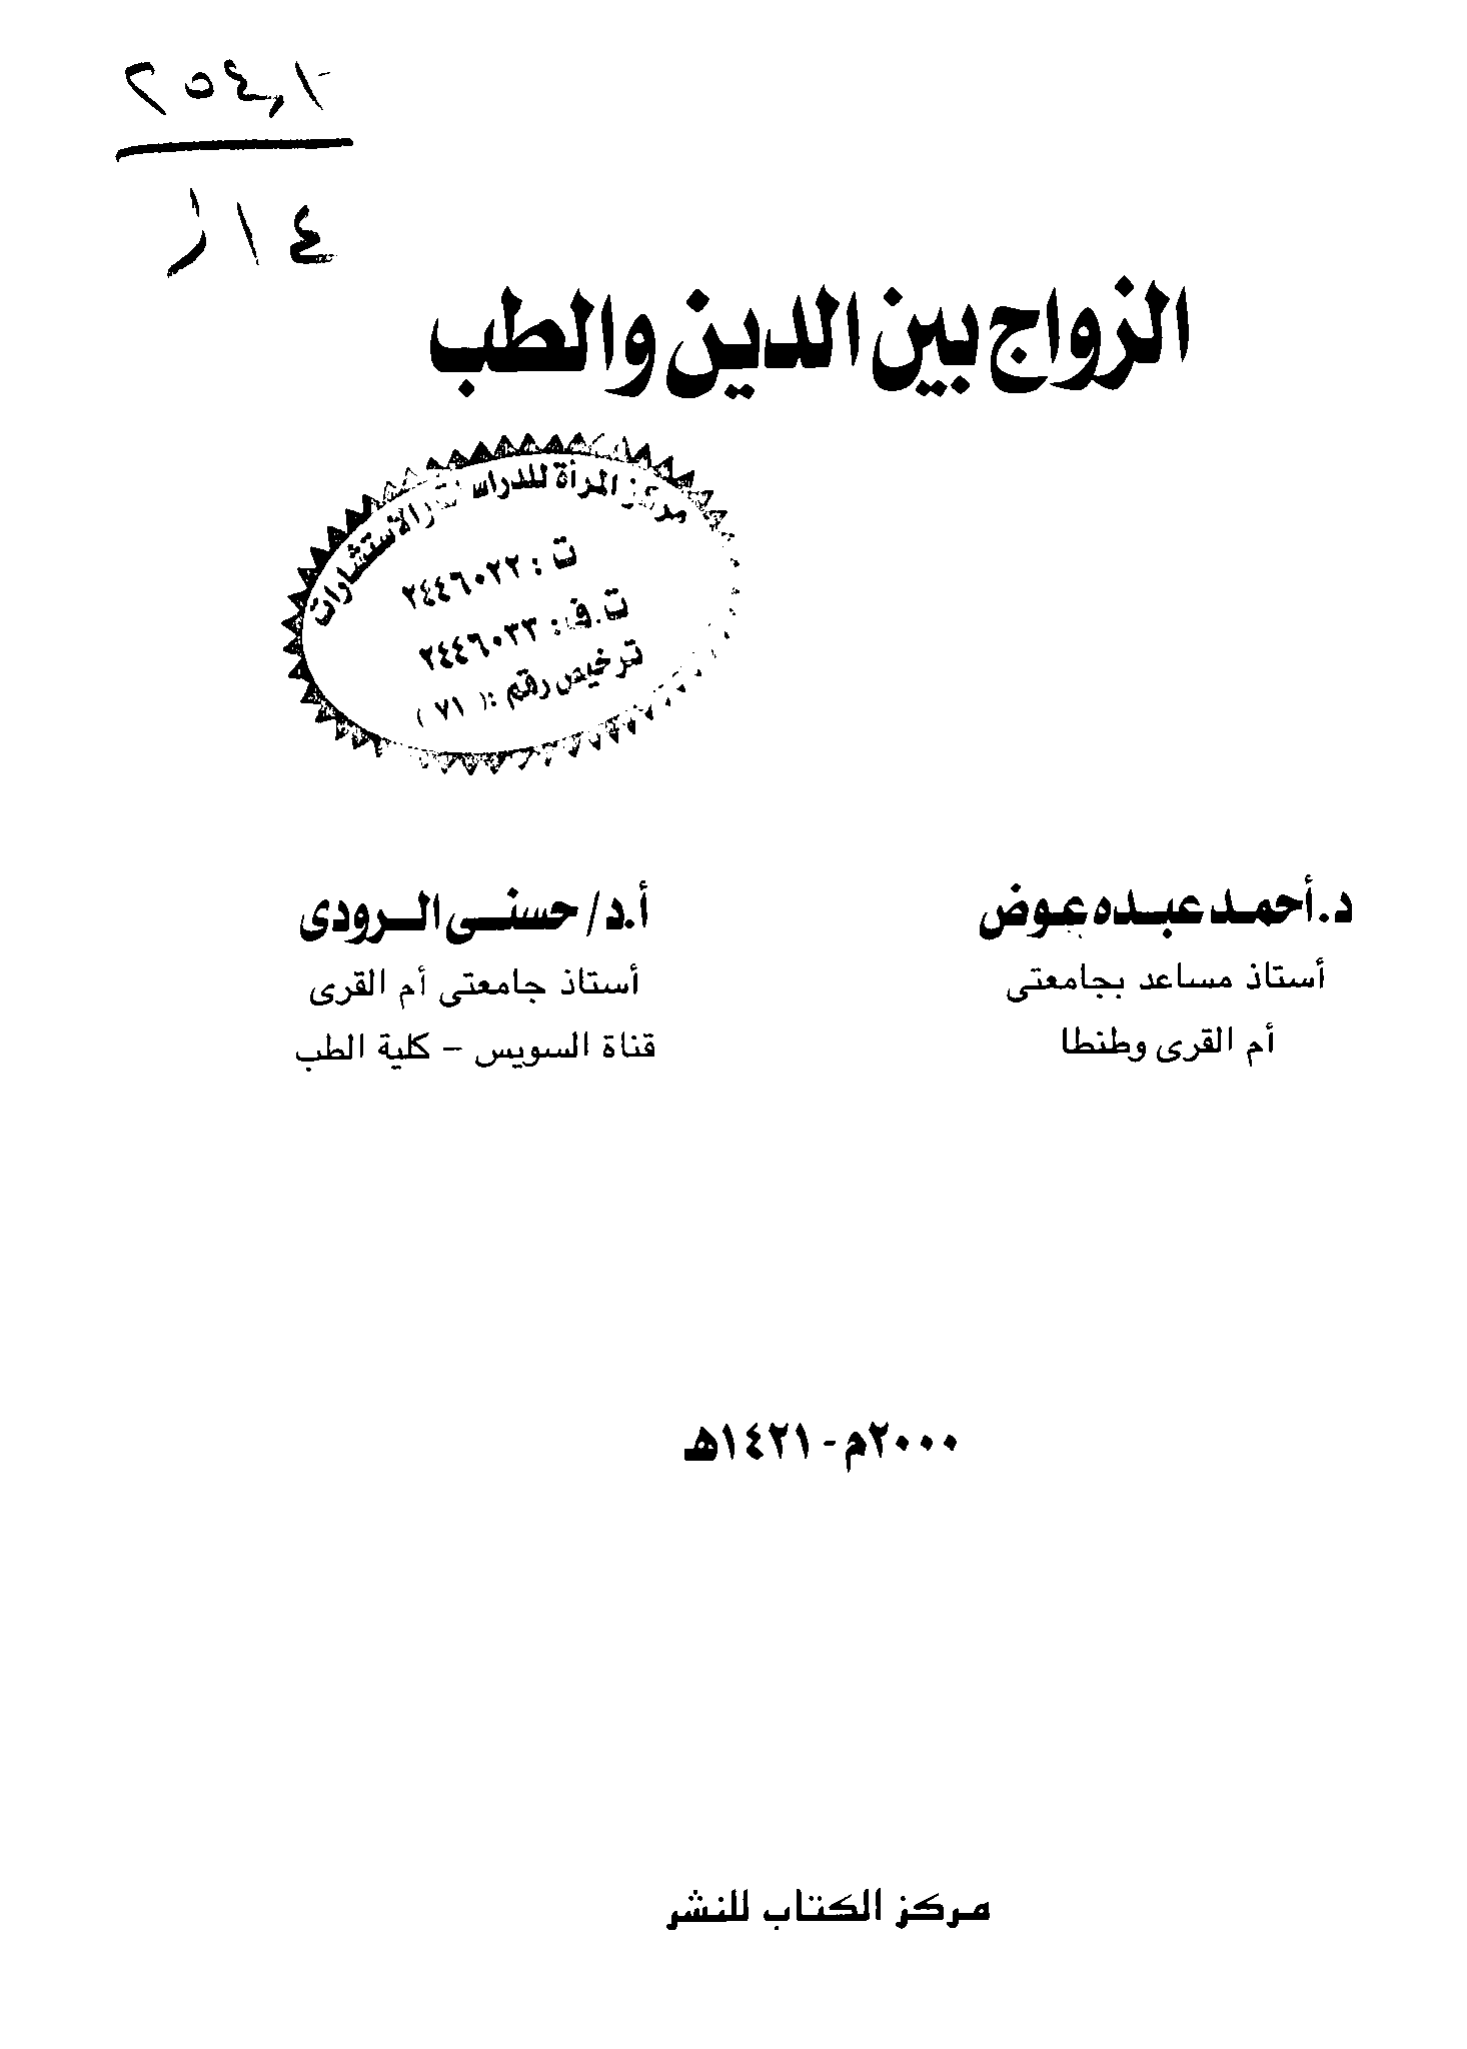 ٢٥٤,١
٤ ١ ر
الزواج بين الدين والطب
مركز المرأة للدراسات والاستشارات
ت : ٢٤٤٦٠٢٢
ت.ف : ٢٤٤٦٠٣٣
ترخيص رقم : ( ٧١ )
د. أحمد عبده عوض
أستاذ مساعد بجامعتى
أم القرى وطنطا
أ.د/ حسنى الرودى
أستاذ جامعتى أم القرى
قناة السويس - كلية الطب
٢٠٠٠م - ١٤٢١هـ
مركز الكتاب للنشر